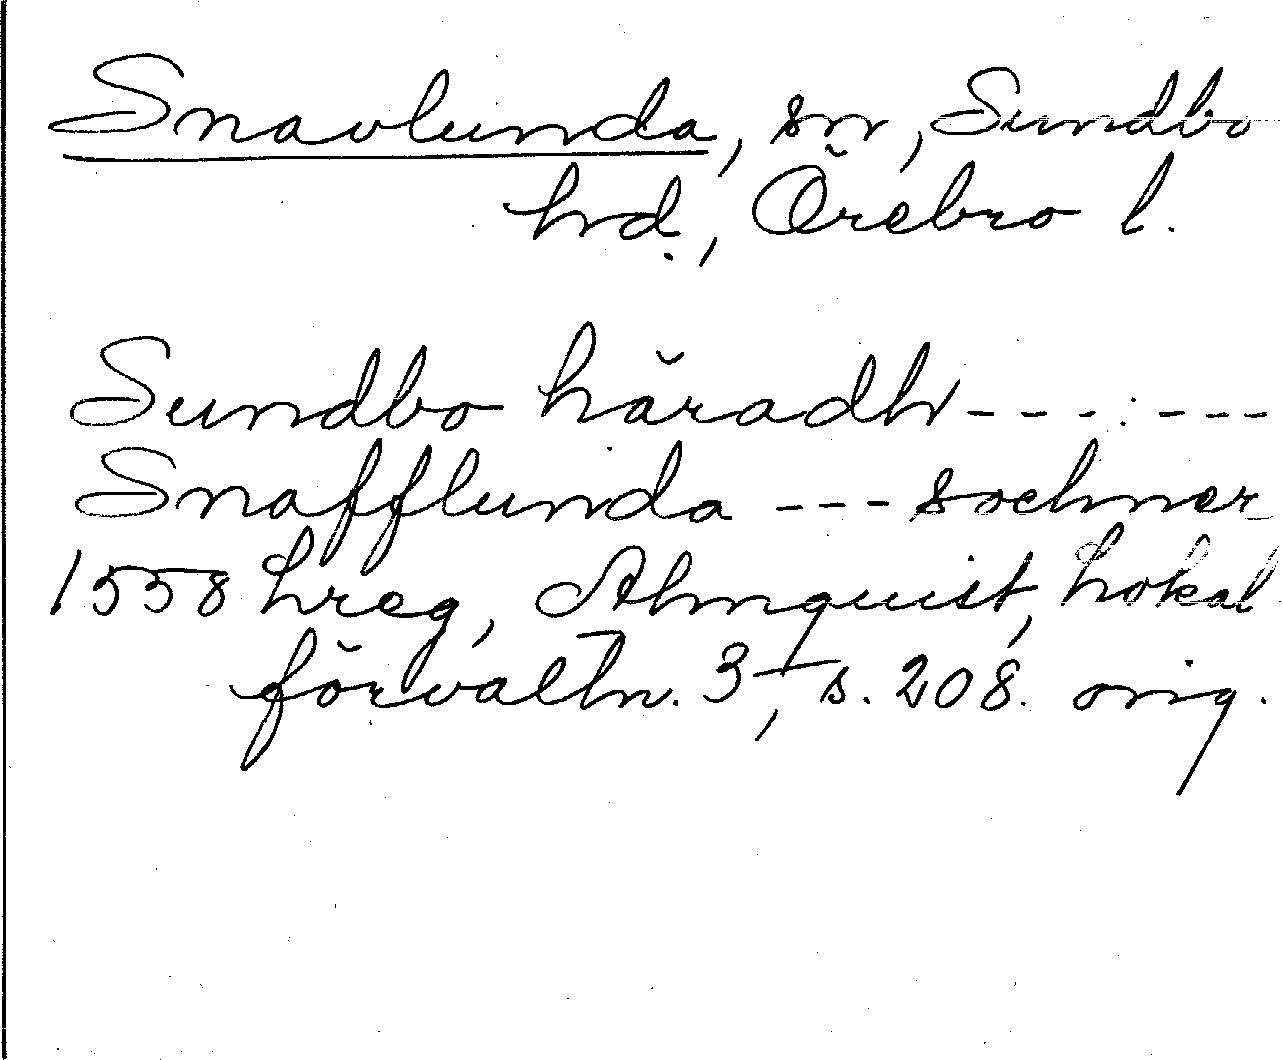 Snavlunda, sn, Sundbo
hd., Örebro l.
Sundbo häradh - - - . - - -
Snafflunda - - - sochner
1558 hreg, Almquist, Lokal
förvaltn. 3, s. 208. orig.